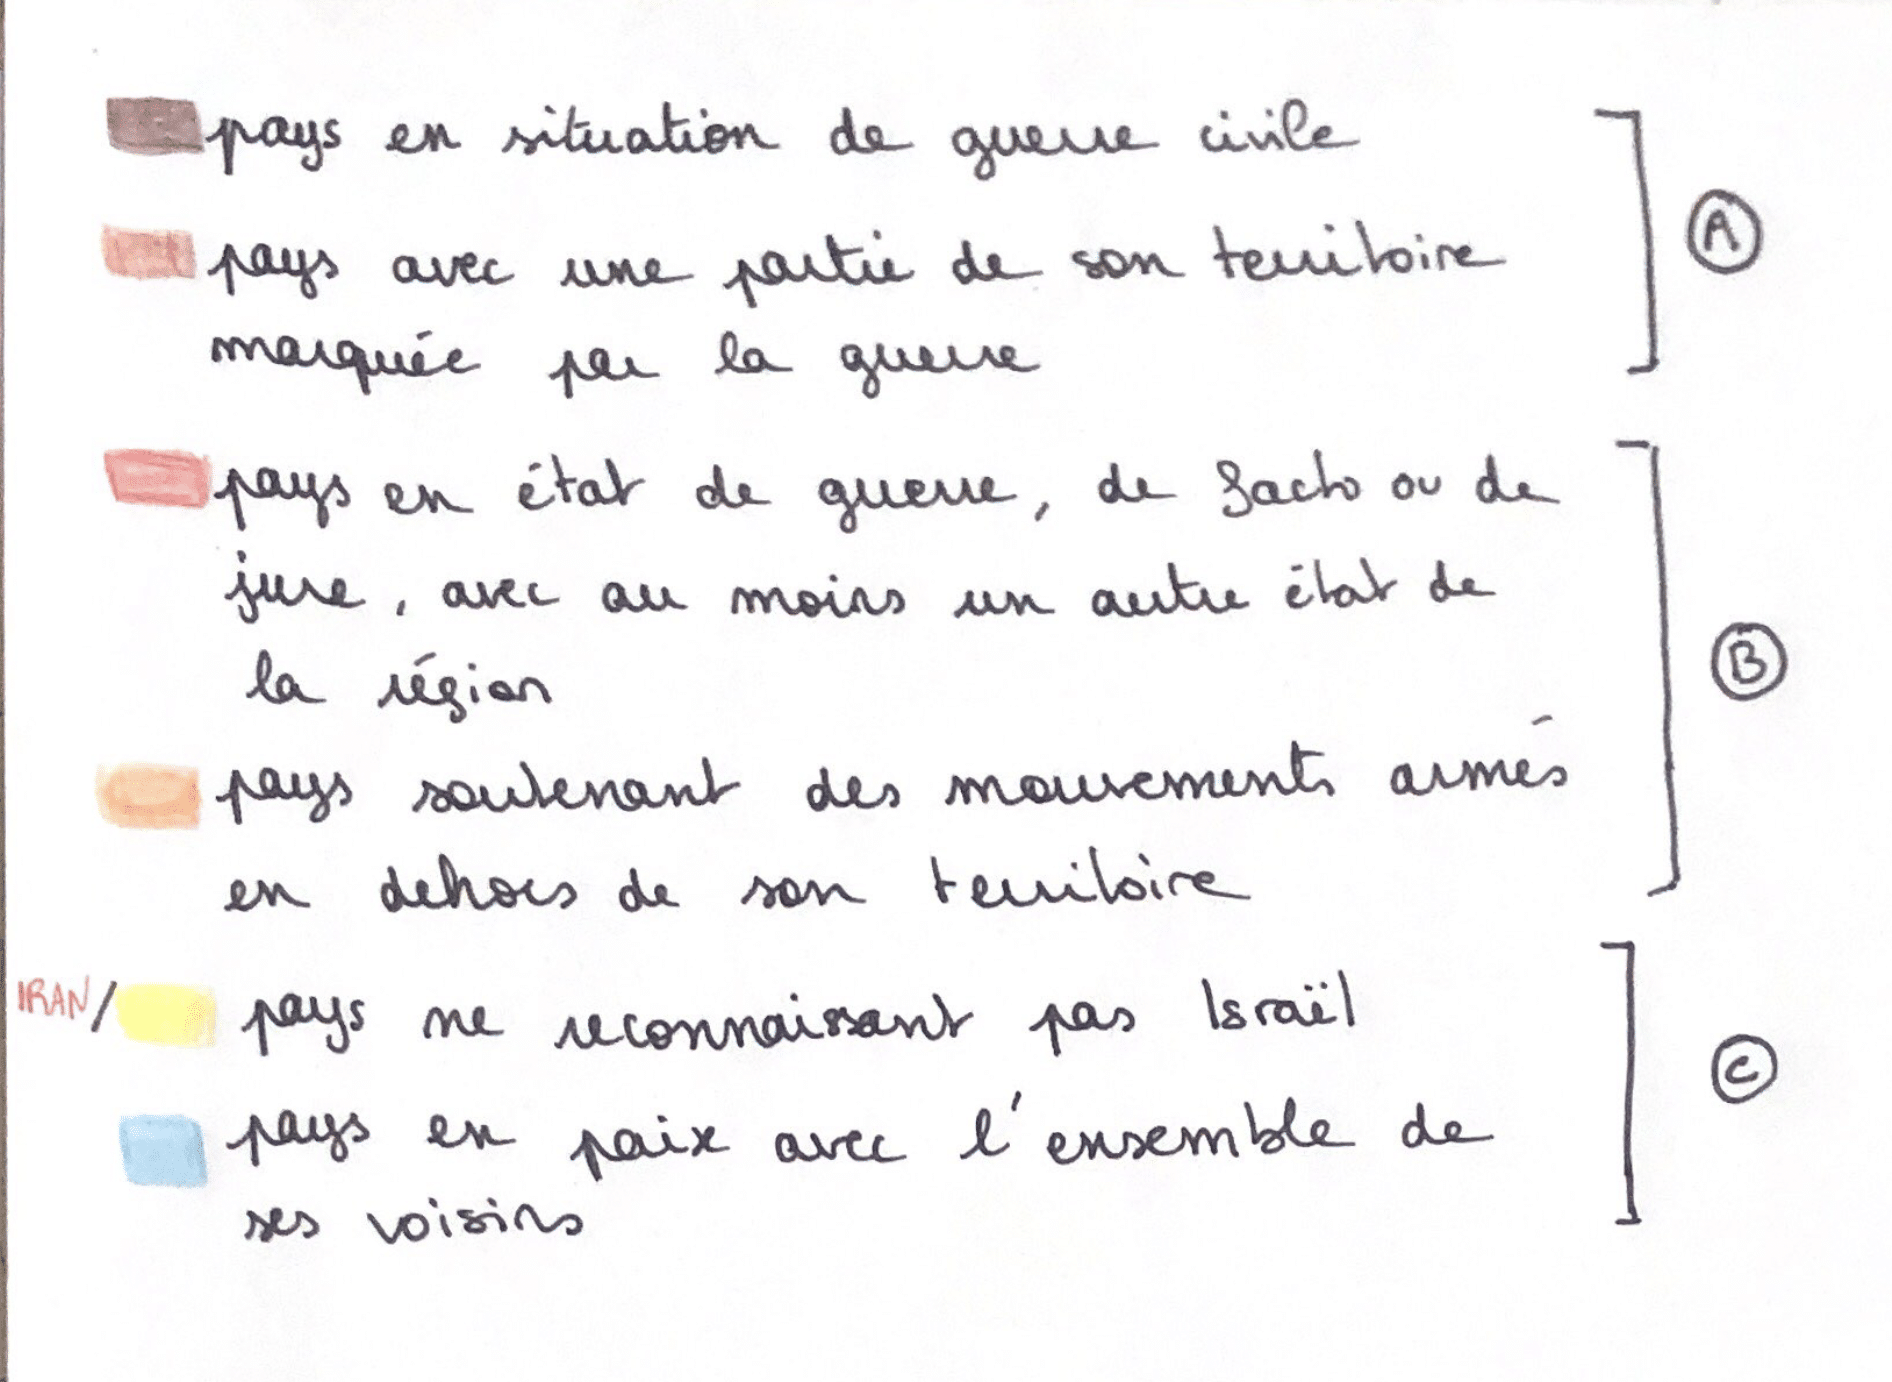 pays en situation de guerre civile
pays avec une partie de son territoire
marquée par la guerre
A
pays en état de guerre, de facto ou de
jure, avec au moins un autre état de
la région
B
pays soutenant des mouvements armés
en dehors de son territoire
IRAN/ pays ne reconnaissant pas Israël
C
pays en paix avec l'ensemble de
ses voisins